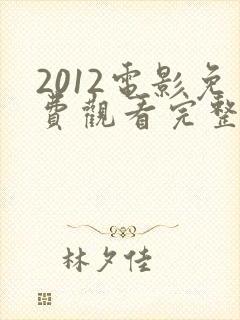 2012電影免
費觀看完整
林夕佳